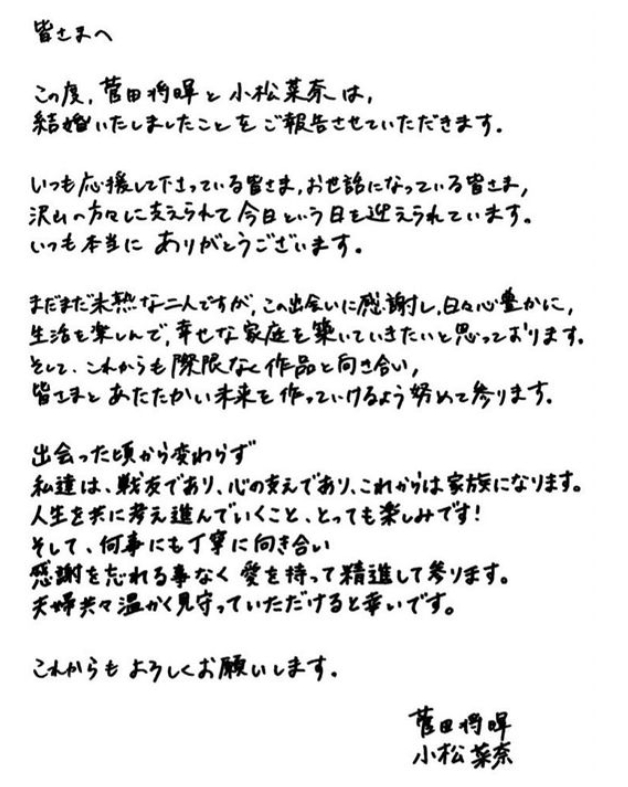 皆さまへ
この度、菅田将暉と小松菜奈は、
結婚いたしましたことをご報告させていただきます。
いつも応援して下さっている皆さま、お世話になっている皆さま、
沢山の方々に支えられて今日という日を迎えられています。
いつも本当にありがとうございます。
まだまだ未熟な二人ですが、この出会いに感謝し、日々心豊かに、
生活を楽しんで、幸せな家庭を築いていきたいと思っております。
そして、これからも際限なく作品と向き合い、
皆さまとあたたかい未来を作っていけるよう努めて参ります。
出会った頃から変わらず
私達は、戦友であり、心の支えであり、これからは家族になります。
人生を共に考え進んでいくこと、とっても楽しみです!
そして、何事にも丁寧に向き合い
感謝を忘れる事なく愛を持って精進して参ります。
夫婦共々温かく見守っていただけると幸いです。
これからもよろしくお願いします。
菅田将暉
小松菜奈